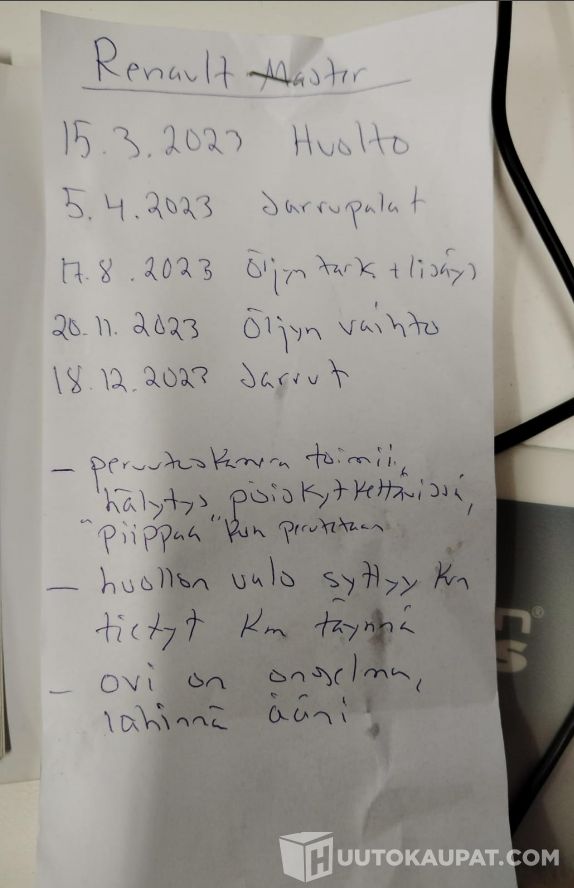 Renault Master
15.3.2023 Huolto
5.4.2023 Jarrupalat
17.8.2023 Öljyn tark + lisäys
20.11.2023 Öljyn vaihto
18.12.2023 Jarrut
- peruutuskamera toimii,
hälytys poiskytkettävissä,
"piippaa" kun peruutetaan
- huollon valo syttyy kun
tietyt km täynnä
- ovi on ongelma,
lähinnä ääni
HUUTOKAUPAT.COM